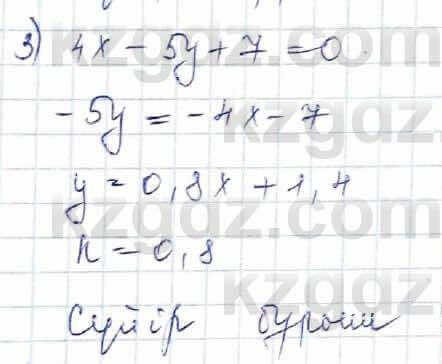 3) 4x - 5y + 7 = 0
-5y = -4x - 7
y = 0,8x + 1,4
k = 0,8
Сүйір бұрыш